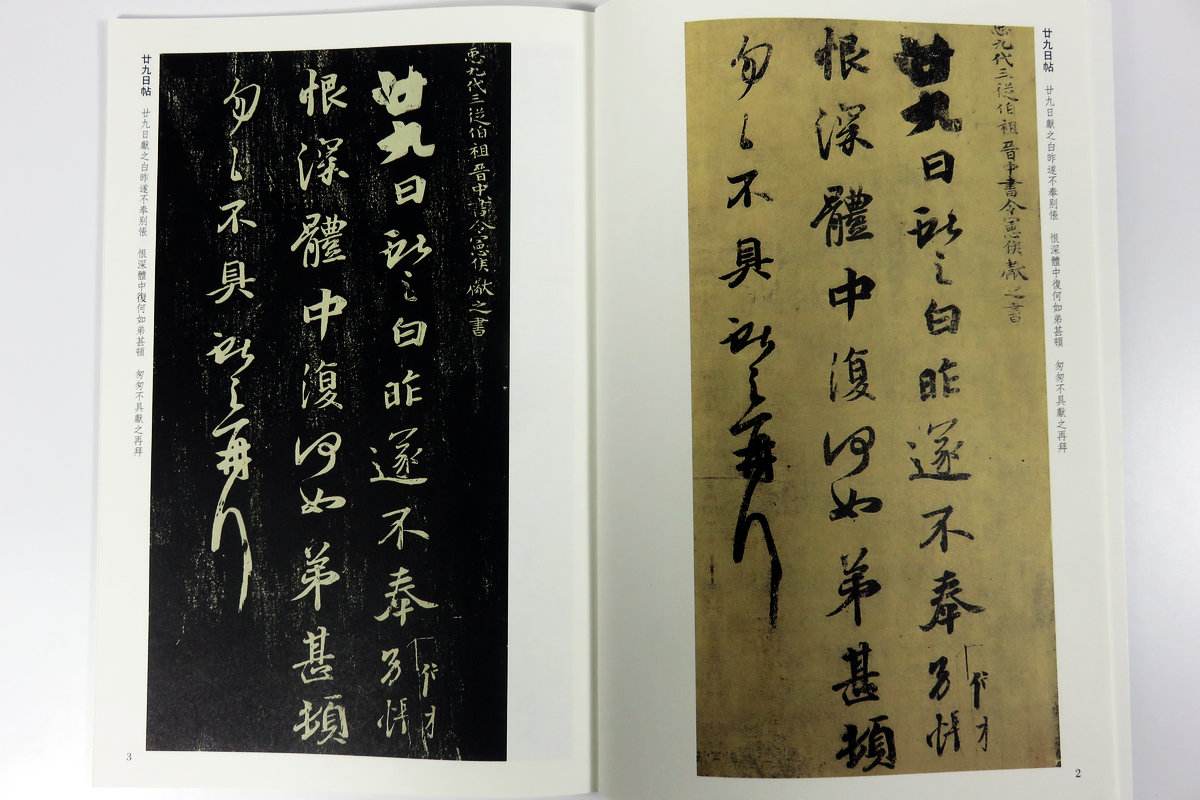 廿九日帖 廿九日獻之白昨遂不奉別悵 恨深體中復何如弟甚頓 匆匆不具獻之再拜
九代三從伯祖晉中書令憲侯獻之書
廿九日獻之白昨遂不奉別悵
恨深體中復何如弟甚頓
勿々不具獻之再拜
2
九代三從伯祖晉中書令憲侯獻之書
廿九日獻之白昨遂不奉別悵
恨深體中復何如弟甚頓
勿々不具獻之再拜
廿九日帖 廿九日獻之白昨遂不奉別悵 恨深體中復何如弟甚頓 匆匆不具獻之再拜
3